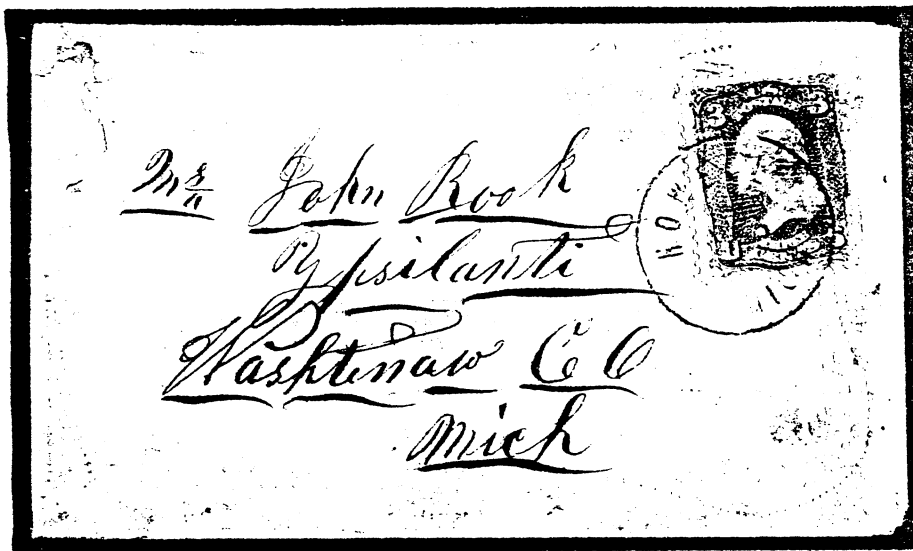 Mr John Rook
Ypsilanti
Washtenaw CO
Mich